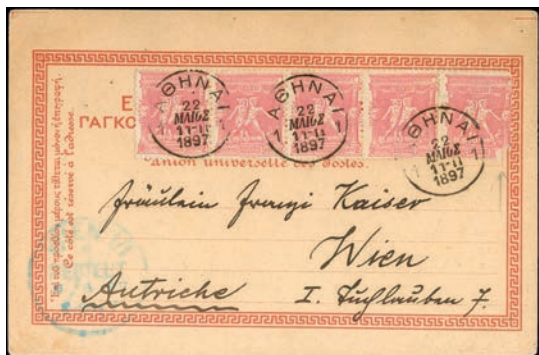 ΑΘΗΝΑΙ
1
1
22
ΜΑΙΟΣ
11-11
1897
ΑΘΗΝΑΙ
1
1
22
ΜΑΙΟΣ
11-11
1897
ΑΘΗΝΑΙ
1
22
ΜΑΙΟΣ
11-11
1897
Ε
ΠΑΓΚΟ
Union universelle des Postes.
Ce côté est réservé à l'adresse.
Fräulein Franzi Kaiser
Wien
Autriche
I. Tuchlauben 7.